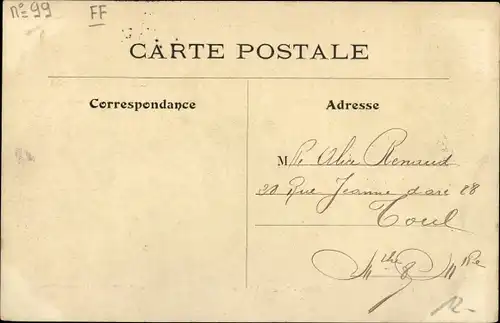 n° 99 FF
CARTE POSTALE
Correspondance
Adresse
Mlle Alice Renaud
20 Rue Jeanne d'arc 28
Toul
Mthe & Mlle
12-